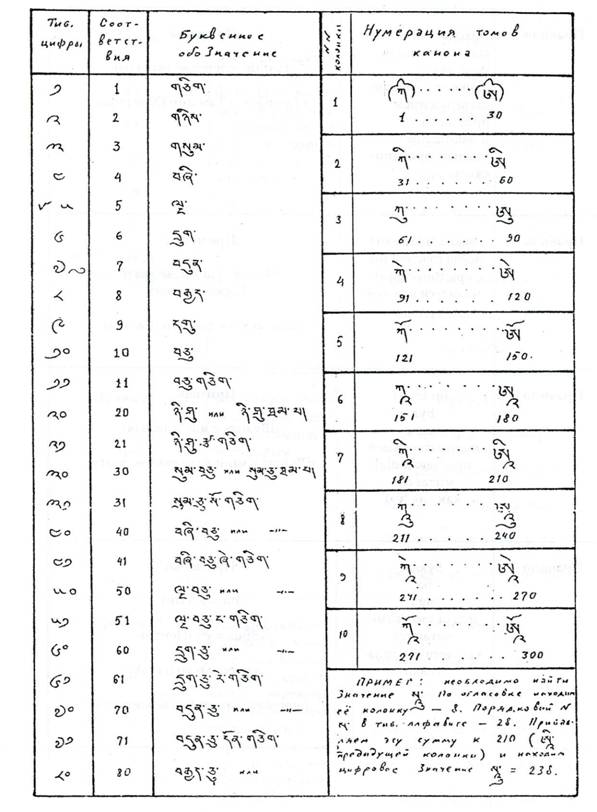 Тиб. цифры
Соответствия
Буквенное обозначение
༡ 1 གཅིག་
༢ 2 གཉིས་
༣ 3 གསུམ་
༤ 4 བཞི་
༥ 5 ལྔ་
༦ 6 དྲུག་
༧ 7 བདུན་
༨ 8 བརྒྱད་
༩ 9 དགུ་
༡༠ 10 བཅུ་
༡༡ 11 བཅུ་གཅིག་
༢༠ 20 ཉི་ཤུ་ или ཉི་ཤུ་ཐམ་པ།
༢༡ 21 ཉི་ཤུ་རྩ་གཅིག་
༣༠ 30 སུམ་ཅུ་ или སུམ་ཅུ་ཐམ་པ།
༣༡ 31 སུམ་ཅུ་སོ་གཅིག་
༤༠ 40 བཞི་བཅུ་ или —"—
༤༡ 41 བཞི་བཅུ་ཞེ་གཅིག་
༥༠ 50 ལྔ་བཅུ་ или —"—
༥༡ 51 ལྔ་བཅུ་ང་གཅིག་
༦༠ 60 དྲུག་ཅུ་ или —"—
༦༡ 61 དྲུག་ཅུ་རེ་གཅིག་
༧༠ 70 བདུན་ཅུ་ или —"—
༧༡ 71 བདུན་ཅུ་དོན་གཅིག་
༨༠ 80 བརྒྱད་ཅུ་ или
NN колонки
Нумерация томов канона
1 (ཀ) . . . . . . (ཨ)
1 . . . . . . 30
2 ཀི . . . . . . ཨི
31 . . . . . . 60
3 ཀུ . . . . . . ཨུ
61 . . . . . . 90
4 ཀེ . . . . . . ཨེ
91 . . . . . . 120
5 ཀོ . . . . . . ཨོ
121 . . . . . . 150.
6 ཀཱ . . . . . . ཨཱ
151 . . . . . . 180
7 ཀཱི . . . . . . ཨཱི
181 . . . . . . 210
8 ཀཱུ . . . . . . ཨཱུ
211 . . . . . . 240
9 ཀཱེ . . . . . . ཨཱེ
241 . . . . . . 270
10 ཀཱོ . . . . . . ཨཱོ
271 . . . . . . 300
ПРИМЕР: необходимо найти
значение По огласовке находим
её колонку — 8. Порядковый N
в тиб. алфавите — 28. Прибав-
ляем эту сумму к 210 (ཨཱི
предыдущей колонки) и находим
цифровое значение = 238.